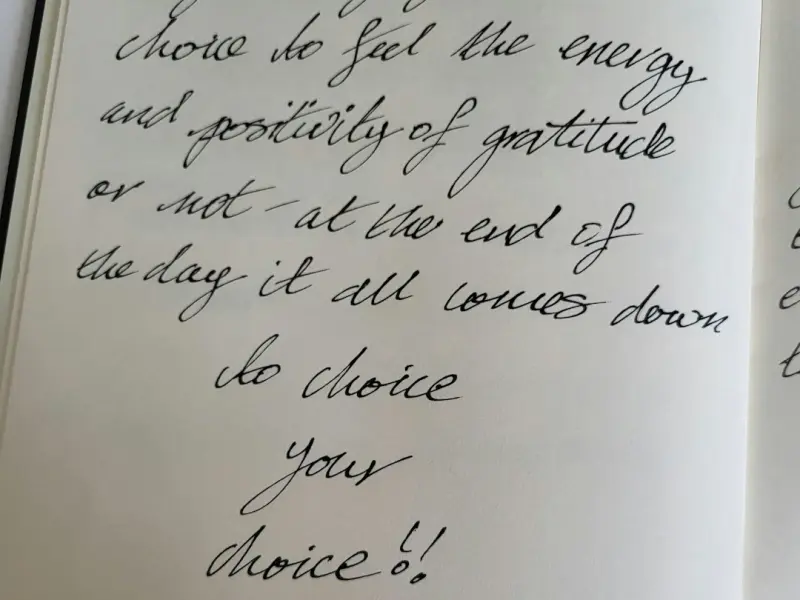 choice to feel the energy
and positivity of gratitude
or not - at the end of
the day it all comes down
to choice
your
choice!!